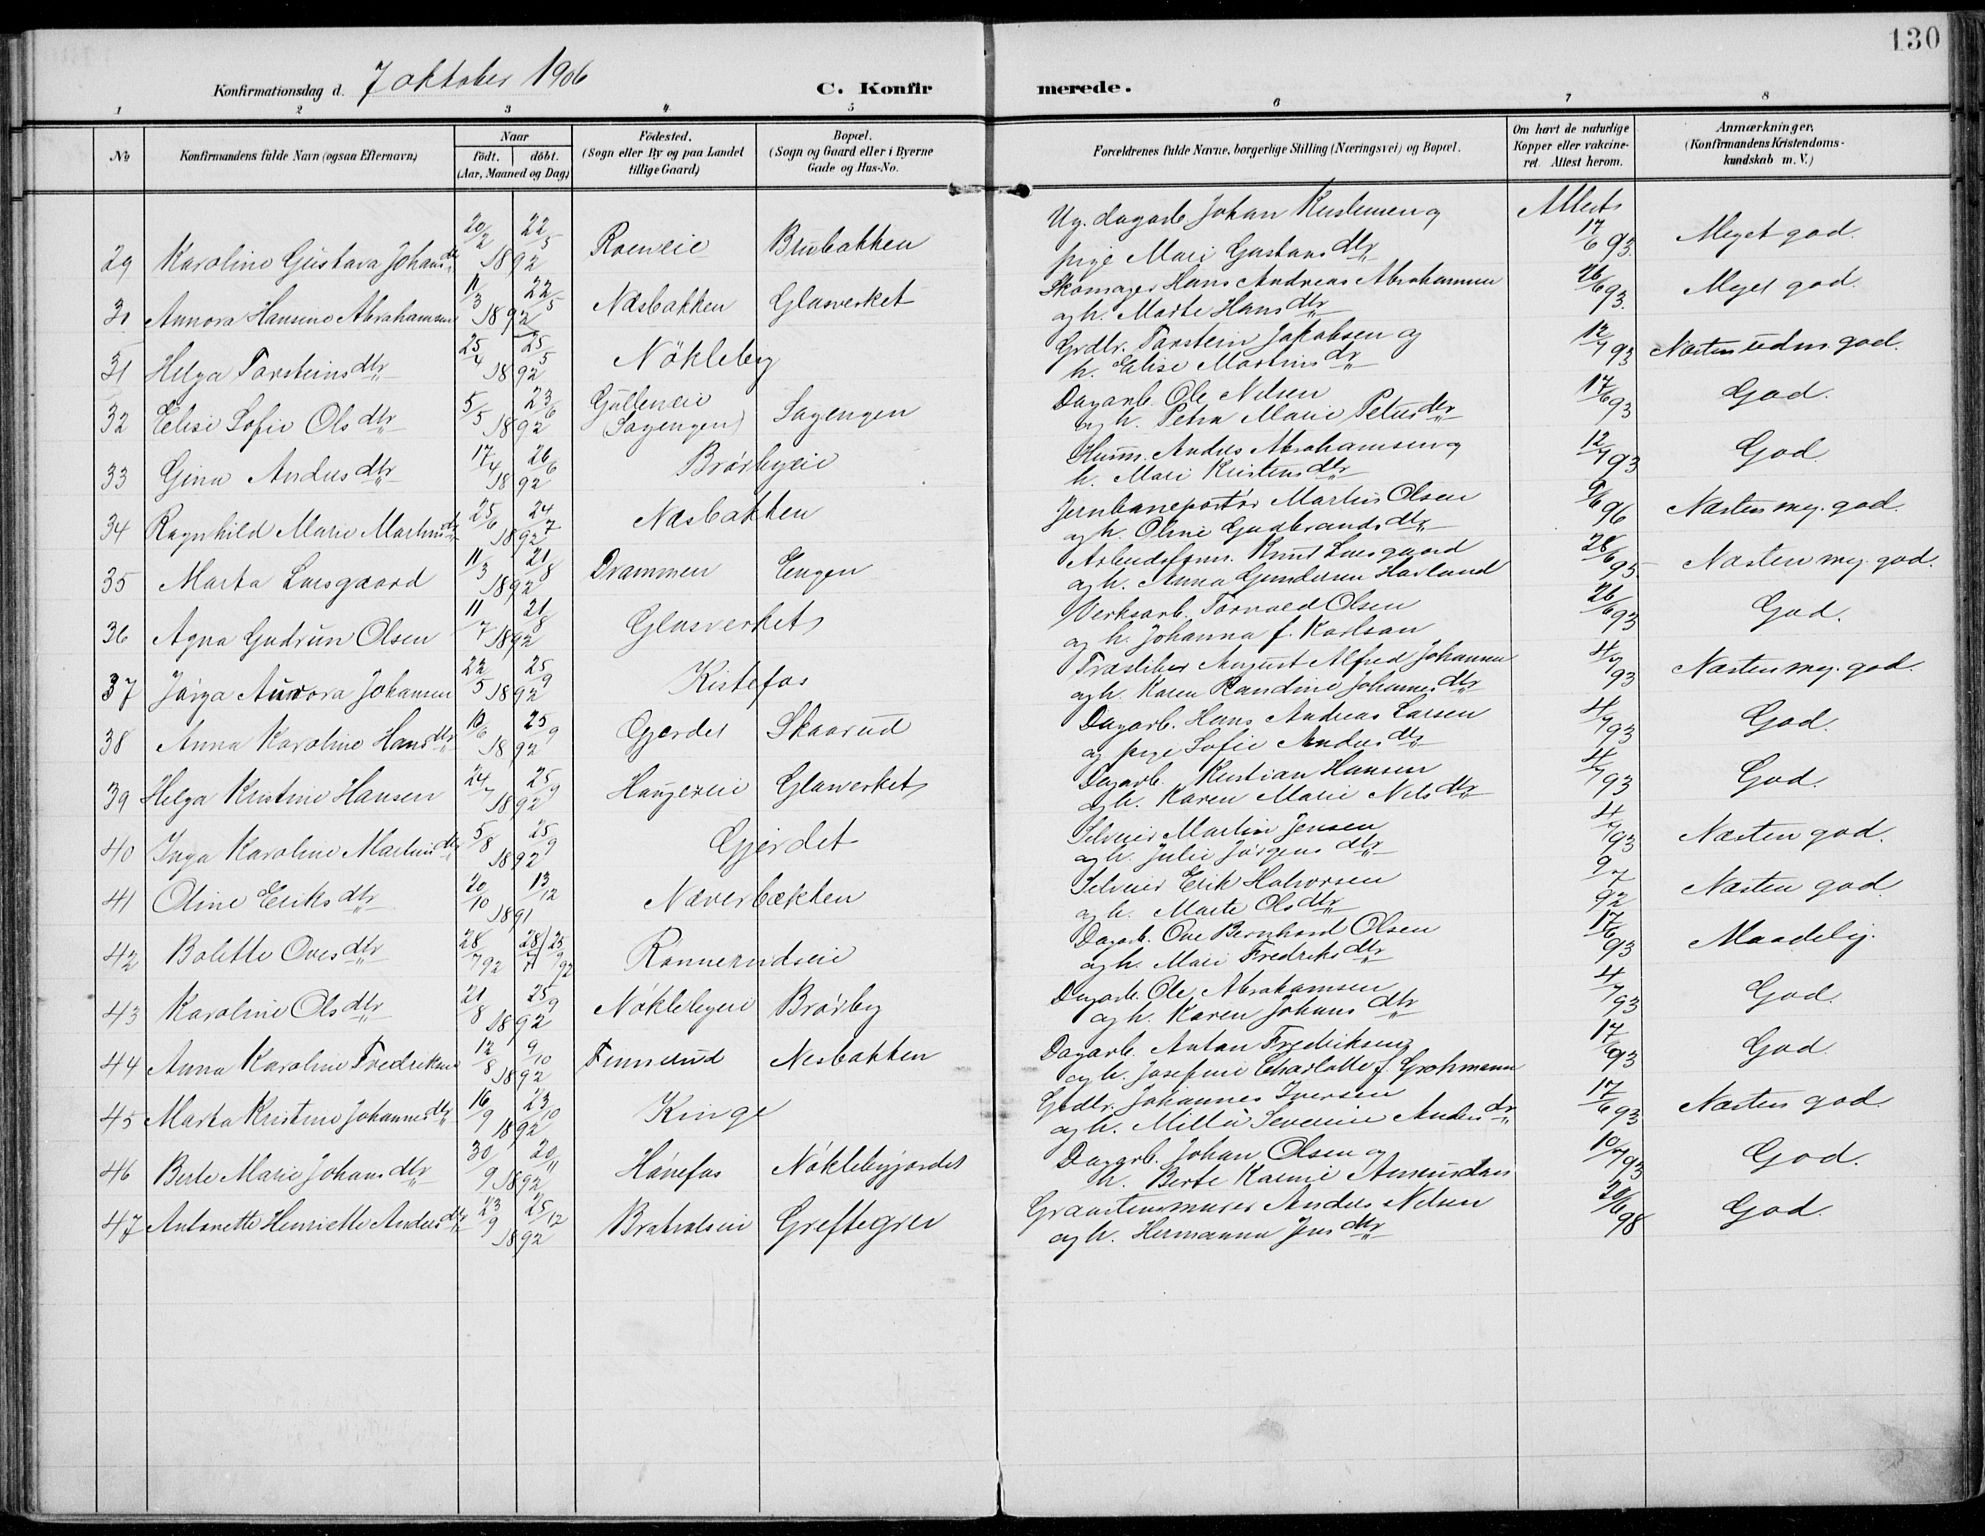 130
Konfirmationsdag d. 7 oktober 1906
C. Konfirmerede.
1 2 3 4 5 6 7 8
No
Konfirmandens fulde Navn (ogsaa Efternavn)
Naar
födt. döbt.
(Aar, Maaned og Dag)
Födested.
(Sogn eller By og paa Landet
tillige Gaard)
Bopæl.
(Sogn og Gaard eller i Byerne
Gade og Hus-No.
Forældrenes fulde Navne, borgerlige Stilling (Næringsvei) og Bopæl.
Om havt de naturlige
Kopper eller vakcine-
ret. Attest herom.
Anmærkninger.
(Konfirmandens Kristendoms-
kundskab m. V.)
Attest
29 Karoline Gustava Johansdtr 20/2 22/5 1892 Roeneie Ug. dagarb. Johan Kristensen og
pige Mari Gustavsdtr 17/6 93. Meget god.
31 Annora Hansine Abrahamsen 11/3 22/5 1892 Næsbakken Glasverket Skomager Hans Andreas Abrahamsen
og h. Marte Hansdtr 26/6 93. Meget god.
31 Helga Torsteinsdtr 25/4 25/5 1892 Nökleby Grdbr. Torstein Jakobsen og
h. Elise Martinsdtr 12/7 93 Næsten god.
32 Elise Sofie Olsdtr 5/5 23/6 1892 Gulleneie
(Sagengen) Sagengen Dagarb. Ole Nilsen
og h. Petra Marie Petersdtr 17/6 93 God.
33 Gina Andersdtr 17/4 26/6 1892 Brörbyeie Husm. Anders Abrahamsen og
h. Mari Kristensdtr 12/7 93 God.
34 Ragnhild Marie Martinsdtr 25/6 24/7 1892 Næsbakken Jernbaneportör Martin Olsen
og h. Oline Gudbrandsdtr 9/6 96 Næsten meg. god.
35 Marta Lusgaard 11/3 21/8 1892 Drammen Engen Arbeidsfmn. Knut Lusgaard
og h. Anna Gundersen Havland 28/6 95. Næsten meg. god.
36 Agna Gudrun Olsen 11/7 21/8 1892 Glasverket Verksarb. Torvald Olsen
og h. Johanna f. Karlson 26/6 93 God.
37 Aurora Johansen 22/5 25/9 1892 Kistefos Træsliber August Alfred Johansen
og h. Karen Randine Johannesdtr 4/7 93 Næsten meg. god.
38 Anna Karoline Hansdtr 25/9 1892 Gjerdet Skaarud Dagarb. Hans Andreas Larsen
og pige Sofie Andersdtr 4/7 93 God.
39 Helga Kristine Hansen 24/7 25/9 1892 Haugereie Glasverket Dagarb. Kristian Hansen
og h. Karen Marie Nilsdtr 4/7 93 God.
40 Inga Karoline Martinsdtr 5/8 25/9 1892 Gjerdet Selveier Martin Jensen
og h. Julie Jörgensdtr 4/7 93 Næsten god.
41 Oline Eriksdtr 20/10 13/12 1891 Næverbækken Selveier Erik Halvorsen
og h. Marte Olsdtr 9/7 92 Næsten god.
42 Bolette Ovesdtr 28/7 92 28/7 | 25/9 92 Rannerudseie Dagarb. Ove Bernhard Olsen
og h. Mari Fredriksdtr 17/6 93 Maadelig.
43 Karoline Olsdtr 21/8 25/9 1892 Nöklebyeie Brörby Dagarb. Ole Abrahamsen
og h. Karen Johansdtr 4/7 93 God.
44 Anna Karoline Fredriksen 12/8 9/10 1892 Finnerud Nesbakken Dagarb. Anton Fredriksen
og h. Josefine Charlotte f. Grohmann 17/6 93 God.
45 Marta Kristine Johannesdtr 16/9 23/10 1892 Kinge Grdbr. Johannes Iversen
og h. Milla Severine Andersdtr 17/6 93. Næsten god.
46 Berte Marie Johansdtr 30/9 20/11 1892 Hönefos Nöklebyjordet Dagarb. Johan Olsen og
h. Berte Karine 10/7 93 God.
47 Antonette Henriette Andersdtr 23/9 25/12 1892 Greftegrev Graastensmurer Anders Nilsen
og h. Hermanna Jensdtr 20/6 98 God.